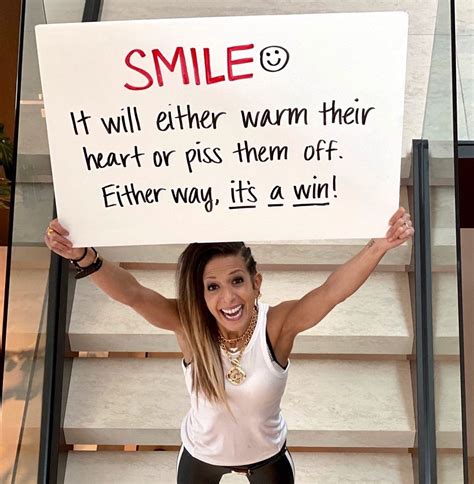 SMILE☺
It will either warm their
heart or piss them off.
Either way, it's a win!